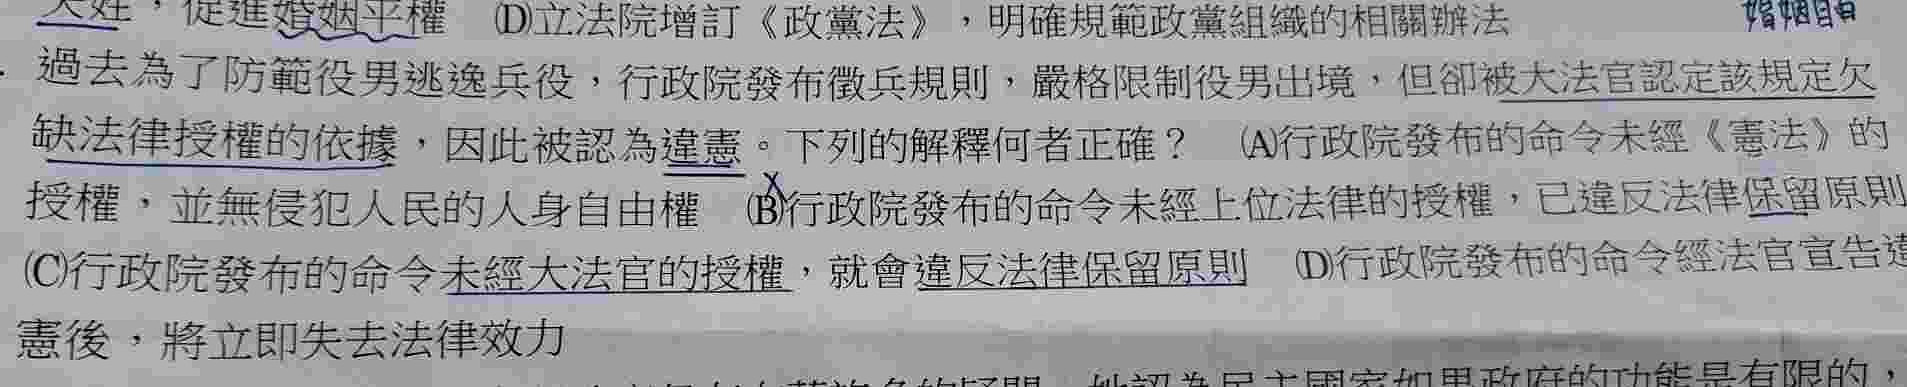 天姓，促進婚姻平權　(D)立法院增訂《政黨法》，明確規範政黨組織的相關辦法
婚姻自由
過去為了防範役男逃逸兵役，行政院發布徵兵規則，嚴格限制役男出境，但卻被大法官認定該規定欠
缺法律授權的依據，因此被認為違憲。下列的解釋何者正確？　(A)行政院發布的命令未經《憲法》的
授權，並無侵犯人民的人身自由權　(B)行政院發布的命令未經上位法律的授權，已違反法律保留原則
(C)行政院發布的命令未經大法官的授權，就會違反法律保留原則　(D)行政院發布的命令經法官宣告違
憲後，將立即失去法律效力
她認為民主國家如果政府的功能是有限的，